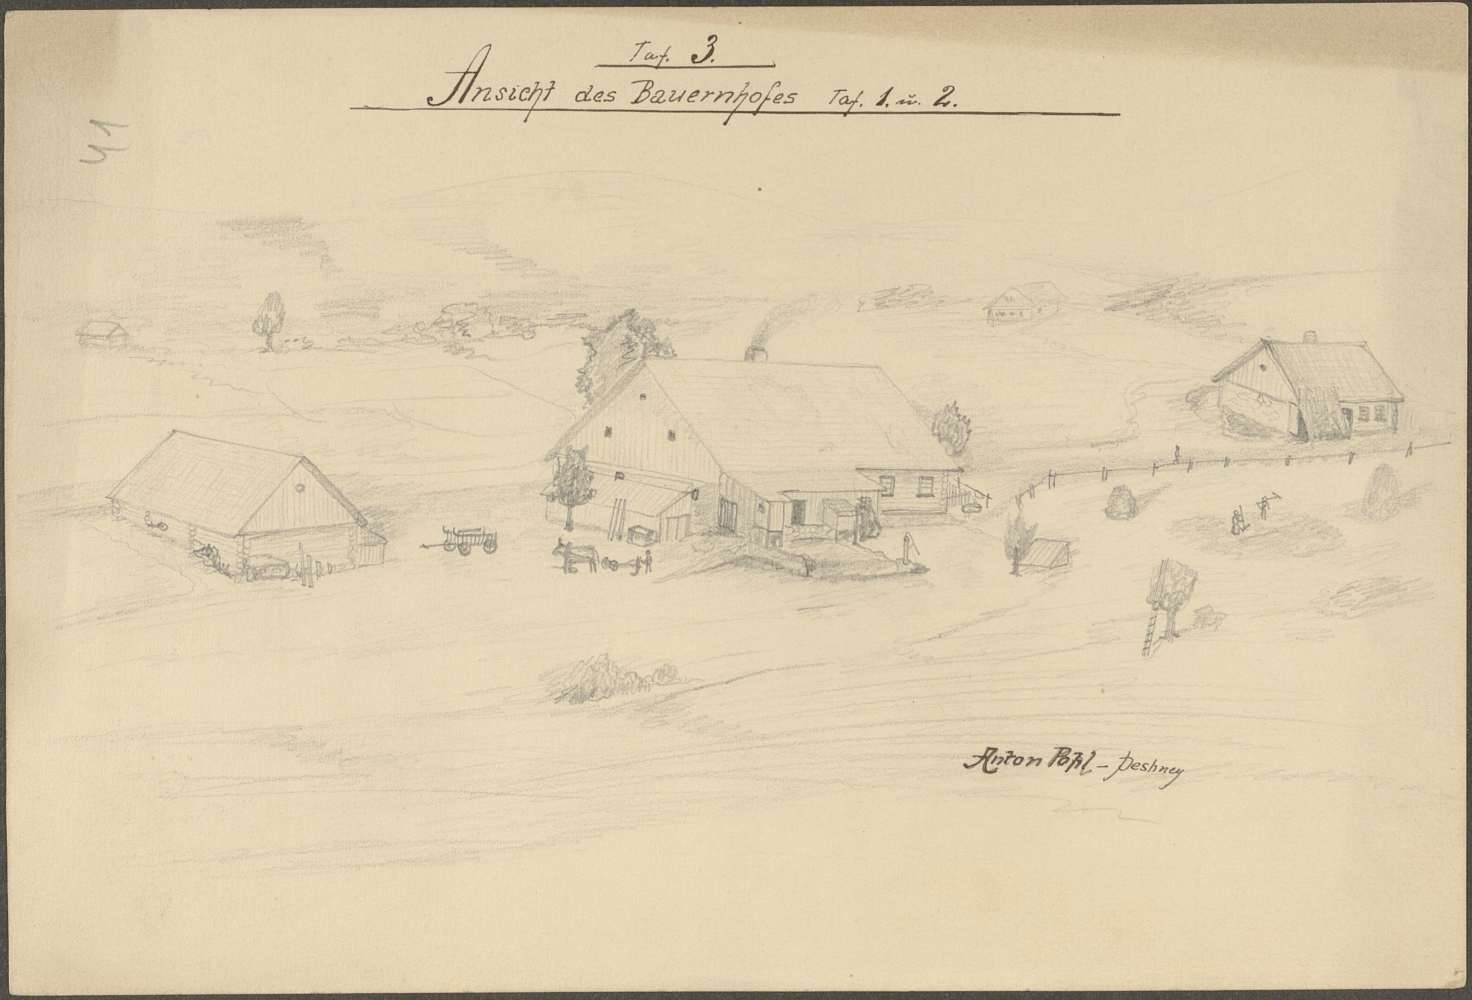 Taf. 3.
Ansicht des Bauernhofes Taf. 1. u. 2.
41
Anton Pohl – Deshney